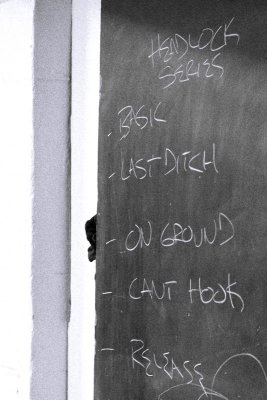 HEADLOCK
SERIES
- BASIC
- LAST DITCH
- ON GROUND
- CANT HOOK
- RELEASE